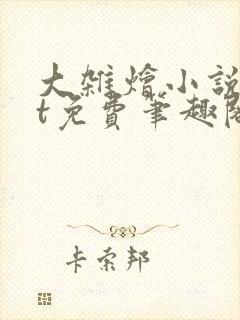 大雜燴小說
t免費筆趣閣
卡索邦